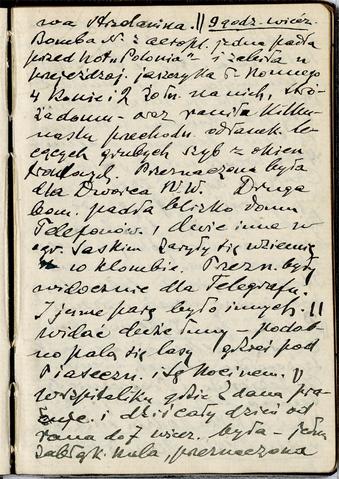 wa Strzelanina. || 9 godz. wiecz.
Bomba N. z aeropl. jedna padła
przed hot. "Polonia" i zabiła w
przejeżdżaj. jaszczyka 6 konnego
4 konie i 2 żołn. na nich, stró-
ża domu - oraz raniła kilku-
nastu przechodn. odłamk. le-
cących grubych szyb z okien
frontowych. Przeznaczona była
dla Dworca W.W. Druga
bom. padła blizko domu
Telefonów. i dwie inne w
ogr. Saskim zaryły się w ziemię
w klombie. Przezn. były
widocznie dla Telegrafu.
I jeszcze parę było innych. ||
widać duże łuny - podob-
no palą się lasy gdzieś pod
Piaseczn. i Skocinem. ||
W szpitaliku gdzie Z dana pra-
cuje. i dziś cały dzień od
rana do 7 wiecz. była - jedna
zabłąk. kula, przeznaczona